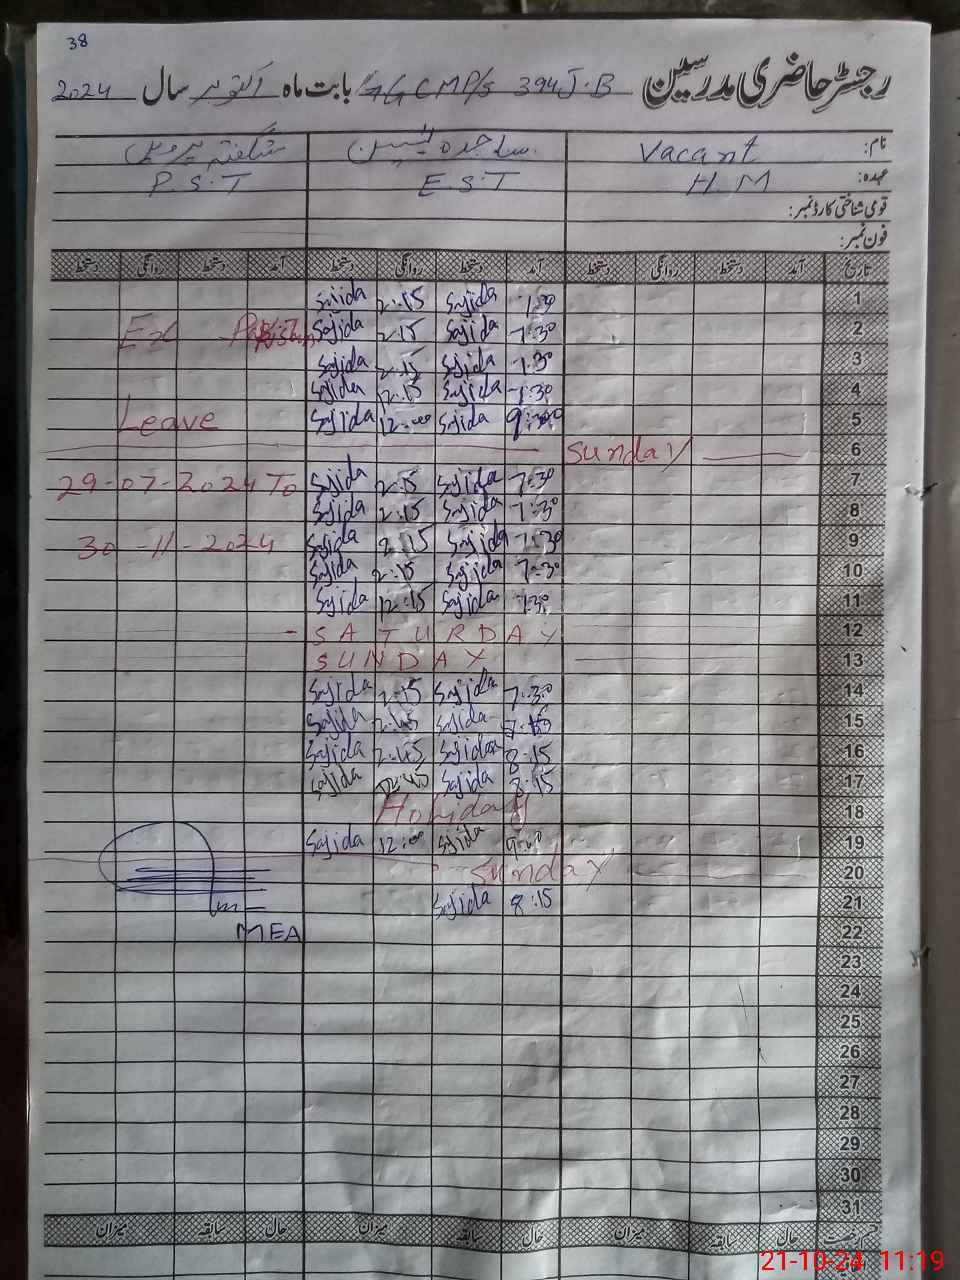 38
رجسٹر حاضری مدرسین GGCMP/s 394 J.B بابت ماہ اکتوبر سال 2024
نام: Vacant ساجدہ یٰسین شگفتہ پروین
عہدہ: H.M E.S.T P.S.T
قومی شناختی کارڈ نمبر:
فون نمبر:
تاریخ آمد دستخط روانگی دستخط آمد دستخط روانگی دستخط آمد دستخط روانگی دستخط
Sajida 2:15 Sajida 7:30 1
Ex Sajida 2:15 Sajida 7:30 2
Sajida 2:15 Sajida 7:30 3
Sajida 12:15 Sajida 7:30 4
Leave Sajida 12:00 Sajida 9:00 5
Sunday 6
29-07-2024 To Sajida 2:15 Sajida 7:30 7
Sajida 2:15 Sajida 7:30 8
30-11-2024 Sajida 2:15 Sajida 7:30 9
Sajida 2:15 Sajida 7:30 10
Sajida 12:15 Sajida 7:30 11
SATURDAY 12
SUNDAY 13
Sajida 2:15 Sajida 7:30 14
Sajida 2:45 Sajida 15
Sajida 2:45 Sajida 8:15 16
Sajida 2:45 Sajida 8:15 17
Holiday 18
Sajida 12:00 Sajida 9:00 19
Sunday 20
Sajida 8:15 21
MEA 22
23
24
25
26
27
28
29
30
31
حال سابقہ میزان حال سابقہ میزان حال سابقہ میزان
21-10-24 11:19